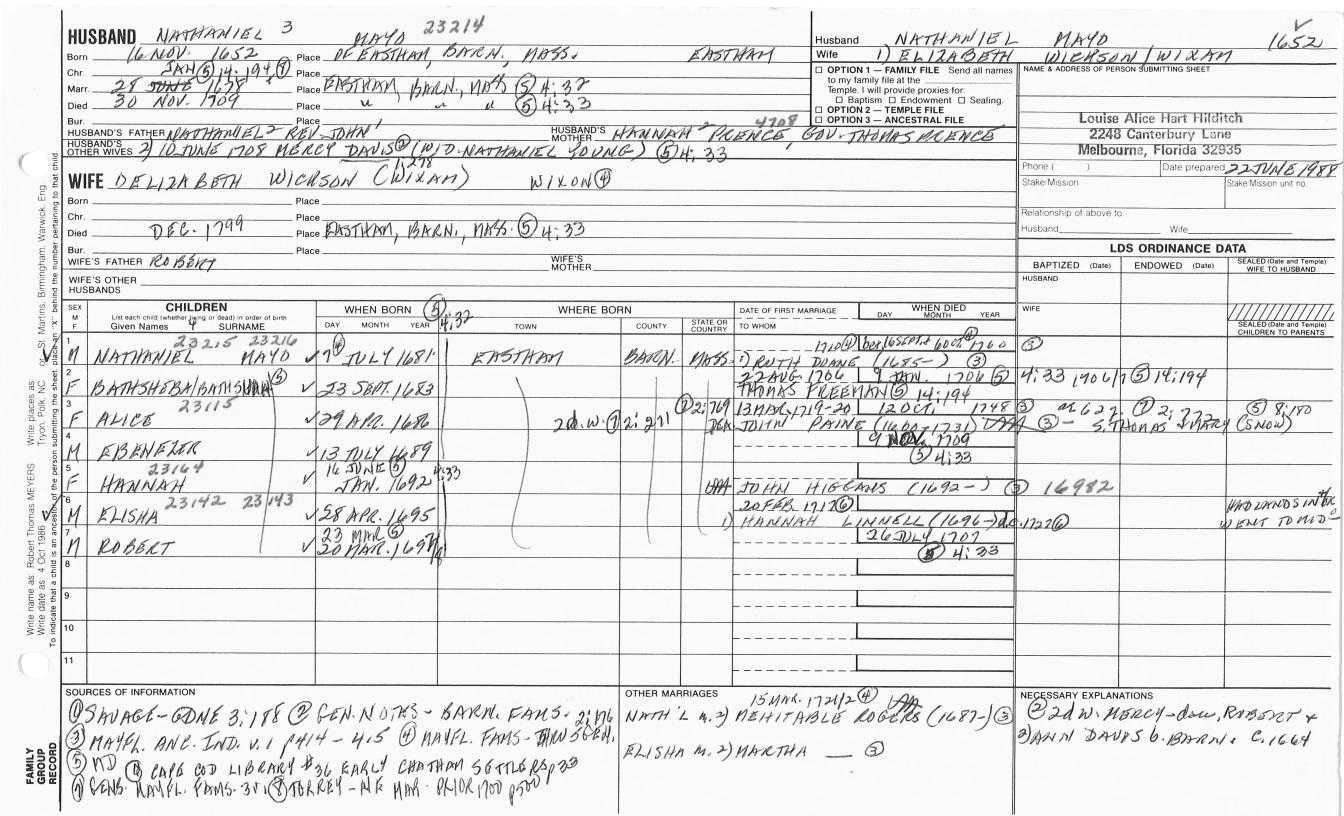 HUSBAND NATHANIEL 3 MAYO 23214
Born 16 NOV. 1652 Place OF EASTHAM, BARN, MASS. EASTHAM
Chr. JAN ⑤ 14:194, ⑧ Place
Marr. 28 JUNE 1678 Place EASTHAM, BARN., MASS ⑤ 4:32
Died 30 NOV. 1709 Place " " " ⑤ 4:33
Bur. Place
HUSBAND'S FATHER NATHANIEL² REV. JOHN¹ HUSBAND'S MOTHER HANNAH² PRENCE, GOV. THOMAS PRENCE 4708
HUSBAND'S OTHER WIVES 2) 10 JUNE 1708 MERCY DAVIS ② (WID. NATHANIEL YOUNG) ⑤ 4:33
Husband NATHANIEL MAYO 1652
Wife 1) ELIZABETH WICKSON/WIXAM
☐ OPTION 1 — FAMILY FILE Send all names
to my family file at the
Temple. I will provide proxies for:
☐ Baptism ☐ Endowment ☐ Sealing.
☐ OPTION 2 — TEMPLE FILE
☐ OPTION 3 — ANCESTRAL FILE
NAME & ADDRESS OF PERSON SUBMITTING SHEET
Louise Alice Hart Hilditch
2248 Canterbury Lane
Melbourne, Florida 32935
Phone ( ) Date prepared 22 JUNE 1988
Stake/Mission Stake Mission unit no.
Relationship of above to
Husband Wife
WIFE 1) ELIZABETH WICKSON (WIXAM) WIXON ④
Born Place
Chr. Place
Died DEC. 1799 Place EASTHAM, BARN., MASS. ⑤ 4:33
Bur. Place
WIFE'S FATHER ROBERT WIFE'S MOTHER
WIFE'S OTHER HUSBANDS
LDS ORDINANCE DATA
BAPTIZED (Date) ENDOWED (Date) SEALED (Date and Temple) WIFE TO HUSBAND
HUSBAND
WIFE
SEALED (Date and Temple) CHILDREN TO PARENTS
SEX M F
CHILDREN
List each child (whether living or dead) in order of birth
Given Names 4 SURNAME
WHEN BORN ⑤ 4:32
DAY MONTH YEAR
WHERE BORN
TOWN COUNTY STATE OR COUNTRY
DATE OF FIRST MARRIAGE
TO WHOM
WHEN DIED
DAY MONTH YEAR
23215 23216
1 M NATHANIEL MAYO ✓ 7 ④ JULY 1681 EASTHAM BARN. MASS. 1710 ④ bet 16 SEPT & 6 OCT 1760 ④
1) RUTH DOANE (1685-) ③
2 F BATHSHEBA/ ③ ✓ 23 SEPT. 1683 22 AUG 1706 9 JAN. 1706 ⑤ 4:33 1706/7 ⑤ 14:194
THOMAS FREEMAN ⑤ 14:194
23115
3 F ALICE ✓ 29 APR. 1686 2d. W. ⑦ 2:271 ⑦ 2:769 13 MAR, 1719-20 12 OCT. 1748 ③ m 622, ⑦ 2:772 ⑤ 8:180
DEA JOHN PAINE ③ - S. THOMAS & MARY (SNOW)
4 M EBENEZER ✓ 13 JULY 1689 9 NOV. 1709
⑤ 4:33
23164
5 F HANNAH ✓ 16 JUNE ⑤ JAN. 1692 4:33 JOHN HIGGANS (1692-) ③ 16982
23142 23143
6 M ELISHA ✓ 28 APR. 1695 20 FEB 1717 ⑥ HAD LANDS IN
1) HANNAH LINNELL (1696-) d.c. 1727 ⑥ WENT TO MID-
7 M ROBERT ✓ 23 MAR ⑤ 20 MAR. 1697/8 26 JULY 1707
⑤ 4:33
8
9
10
11
SOURCES OF INFORMATION
① SAVAGE-GDNE 3:188 ② GEN. NOTES - BARN. FAMS. 2:176
③ MAYFL. ANC. IND. V.1 p414 - 415 ④ MAYFL. FAMS - THRU 5 GEN.
⑤ MD ⑥ CAPE COD LIBRARY #36 EARLY CHATHAM SETTLERS p 33
⑦ GENS. MAYFL. FAMS. ⑧ TORREY - NE MAR. PRIOR 1700 p500
OTHER MARRIAGES
15 MAR. 1721/2 ④
NATH'L m. 2) MEHITABLE ROGERS (1687-) ③
ELISHA m. 2) MARTHA ___ ③
NECESSARY EXPLANATIONS
② 2d W. MERCY-dau. ROBERT &
2) ANN DAVIS b. BARN. C.1664
FAMILY GROUP RECORD
Write name as: Robert Thomas MEYERS Write places as: Tryon, Polk, NC or St. Martins, Birmingham, Warwick, Eng.
Write date as: 4 Oct 1986
To indicate that a child is an ancestor of the person submitting the sheet, place an "X" behind the number pertaining to that child